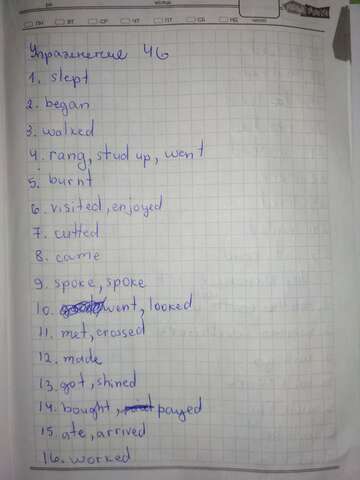 ПН ВТ СР ЧТ ПТ СБ ВС
Упражнение 46
1. slept
2. began
3. walked
4. rang, stud up, went
5. burnt
6. visited, enjoyed
7. cutted
8. came
9. spoke, spoke
10. went, looked
11. met, crossed
12. made
13. got, shined
14. bought, payed
15. ate, arrived
16. worked